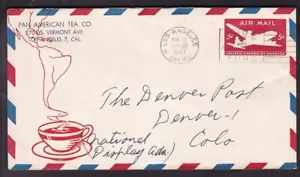 PAN AMERICAN TEA CO.
S. VERMONT AVE.
LOS ANGELES 7, CAL.
LOS ANGELES
1947
CALIF.
AIR MAIL
5¢ 5¢
UNITED STATES OF AMERICA
The Denver Post
Denver-1
Colo
(national
Display Adv.)